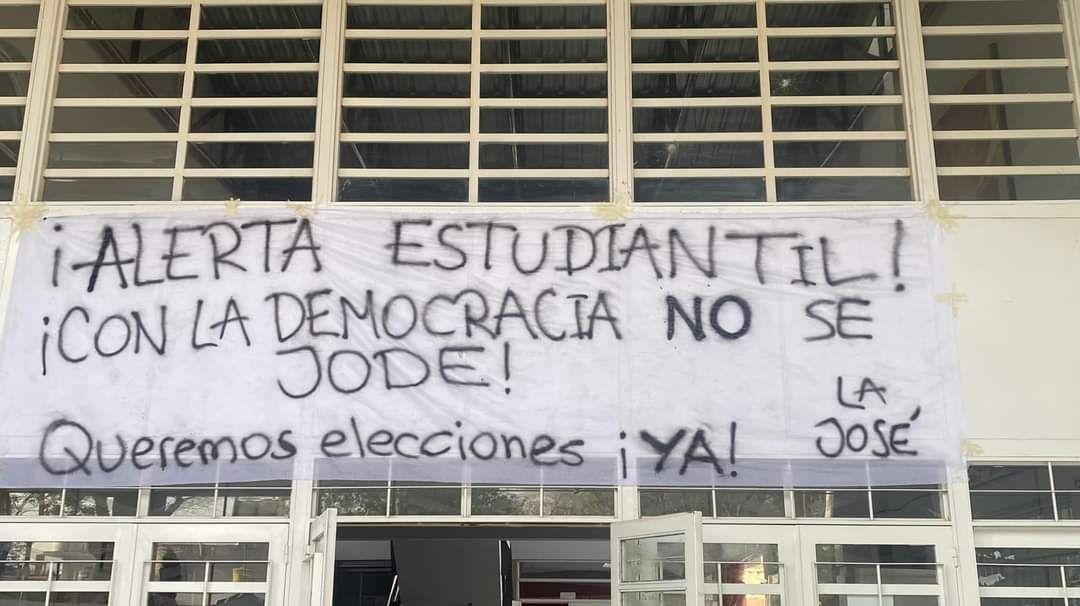 ¡ALERTA ESTUDIANTIL!
¡CON LA DEMOCRACIA NO SE
JODE!
Queremos elecciones ¡YA!
LA
JOSÉ